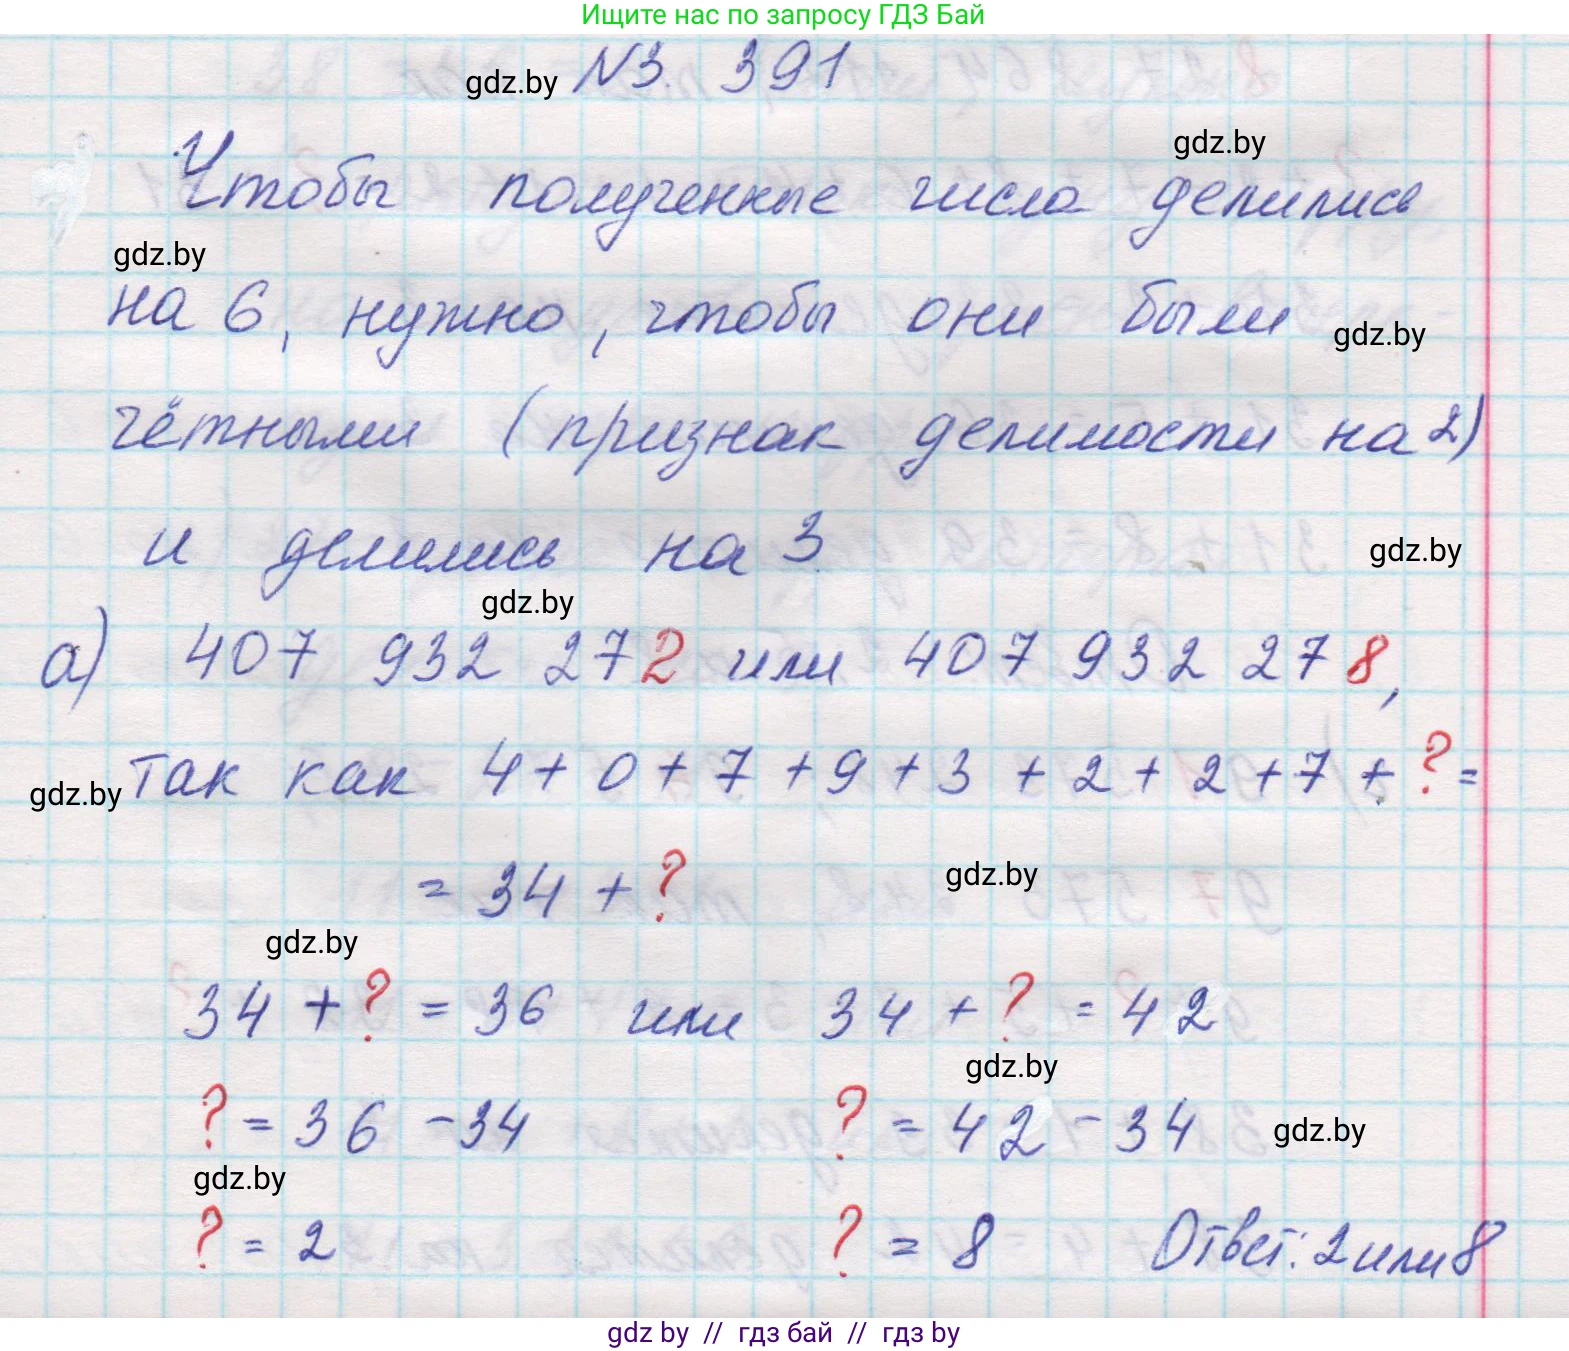 Ищите нас по запросу ГДЗ Бай
gdz.by
№3. 391
gdz.by
Чтобы полученные числа делились
gdz.by
на 6, нужно, чтобы они были
gdz.by
чётными (признак делимости на 2)
и делились на 3.
gdz.by
gdz.by
а) 407 932 272 или 407 932 278,
так как 4+0+7+9+3+2+2+7+?=
gdz.by
= 34 + ?
gdz.by
gdz.by
34 + ? = 36 или 34 + ? = 42
gdz.by
? = 36 - 34 ? = 42 - 34
gdz.by
gdz.by
? = 2 ? = 8 Ответ: 2 или 8
gdz by // гдз бай // гдз by